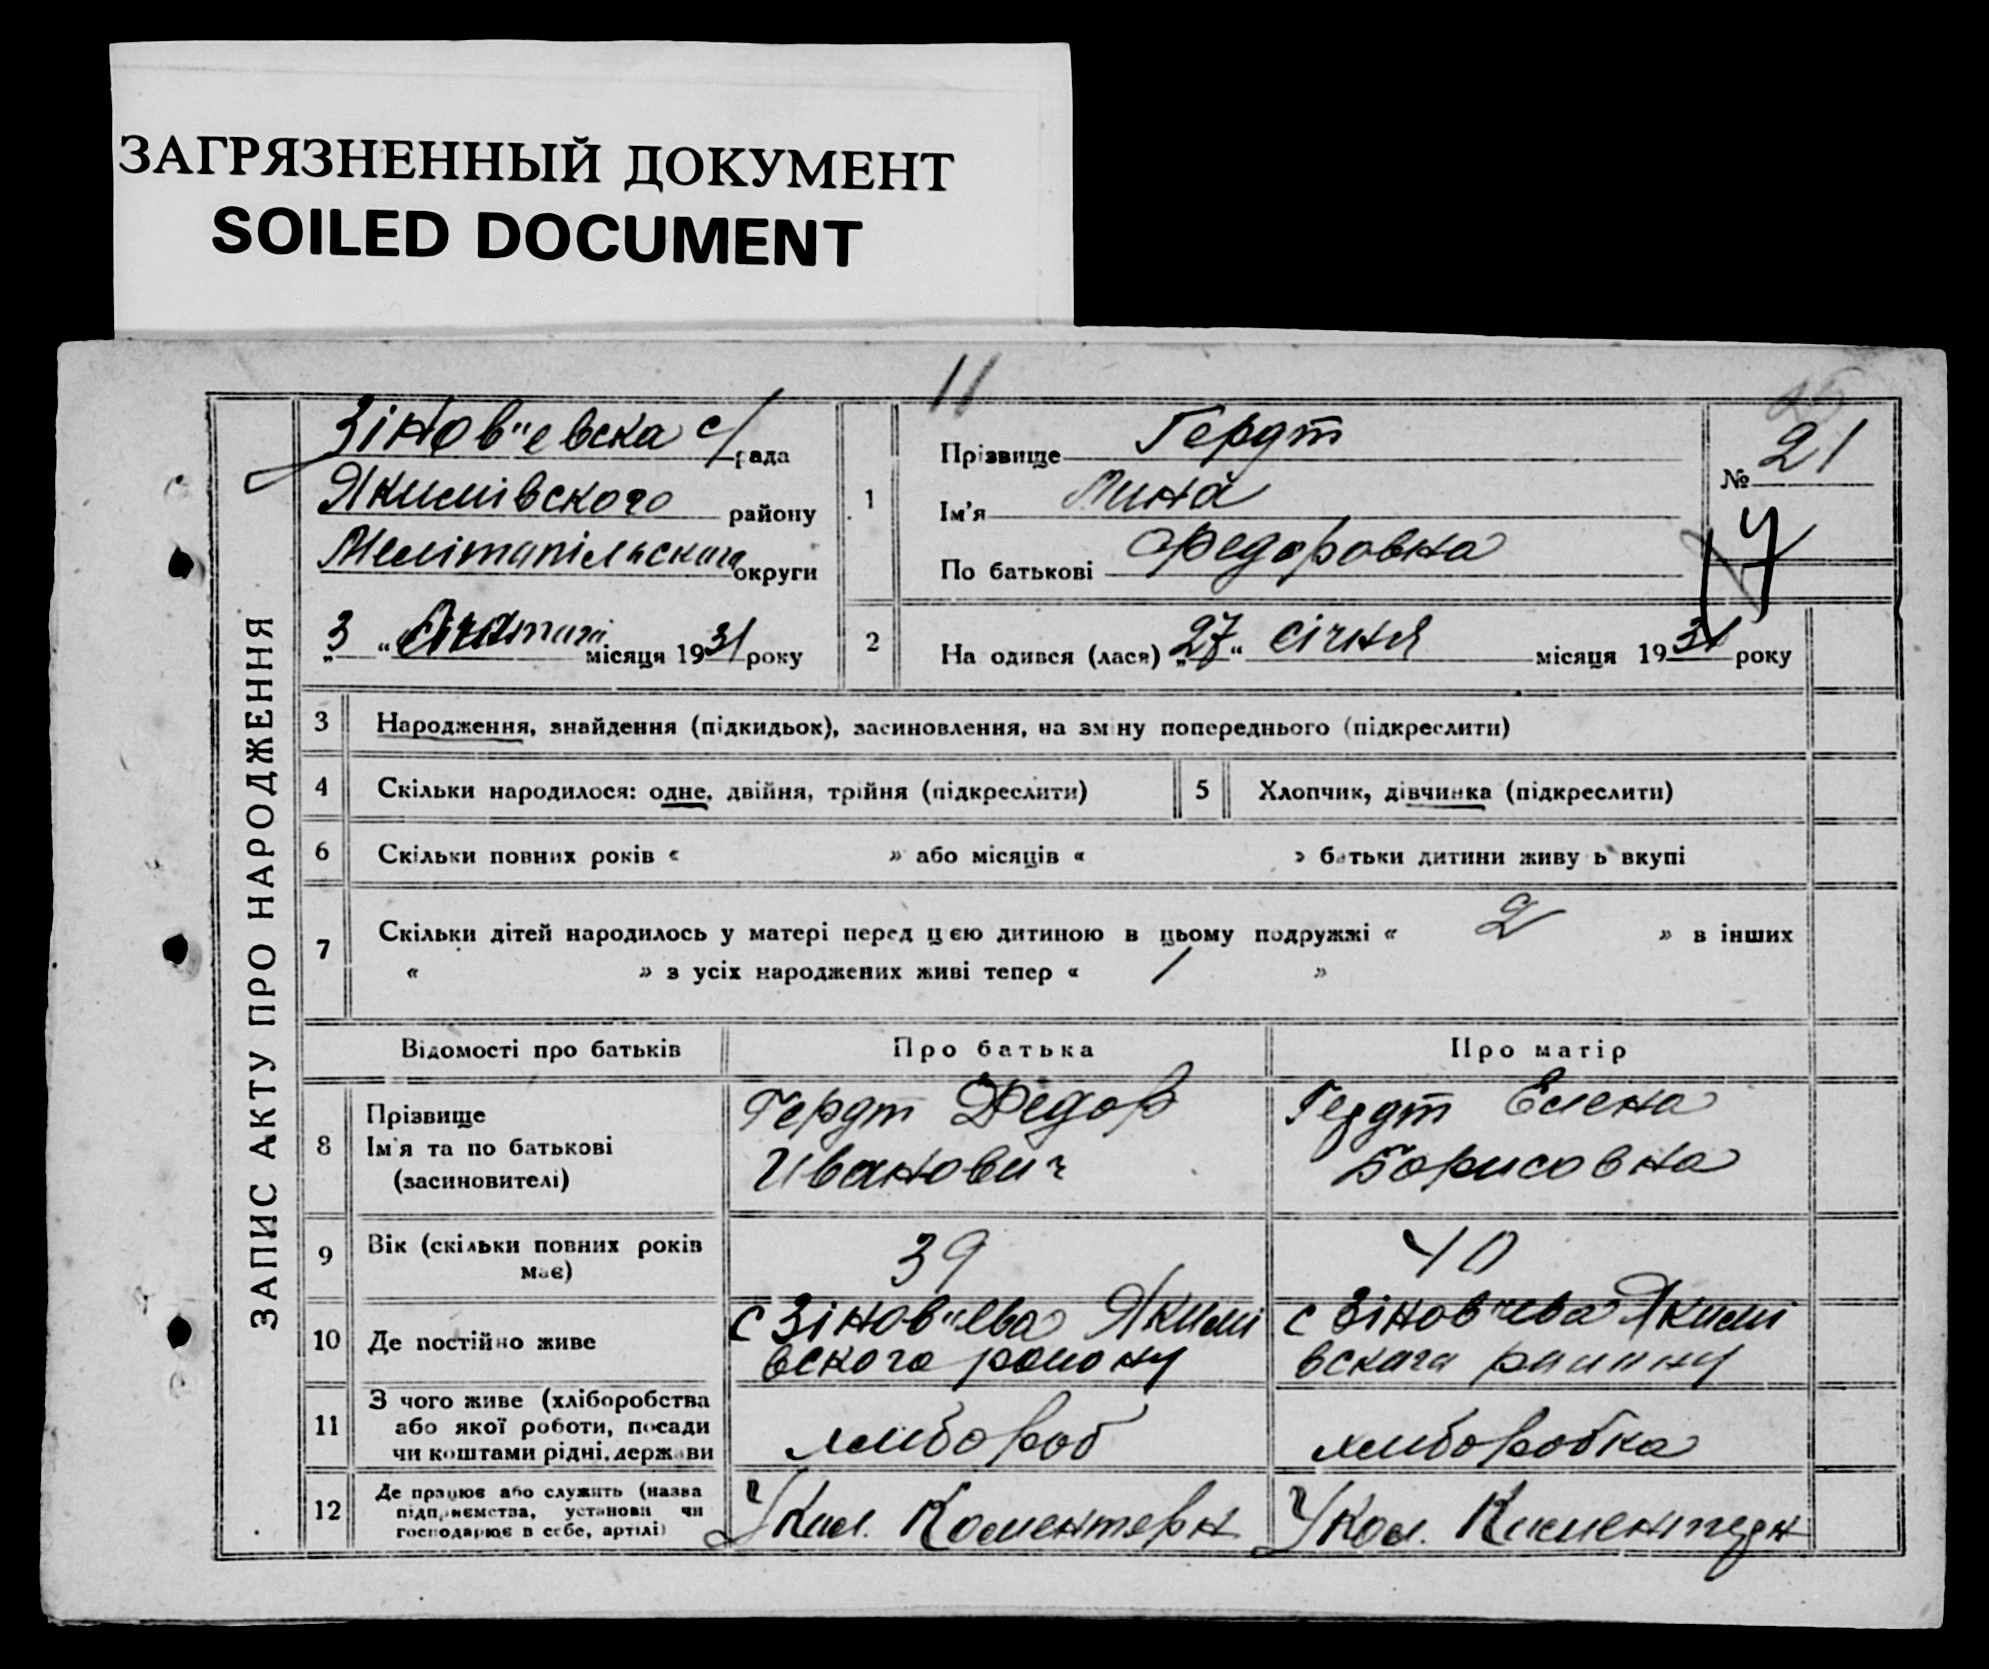 ЗАГРЯЗНЕННЫЙ ДОКУМЕНТ
SOILED DOCUMENT
11
ЗАПИС АКТУ ПРО НАРОДЖЕННЯ
Зінов"евска с/рада
Якимівского району
Мелітапільського округи
„3“ місяця 1931 року
1
Прізвище Гердт
Ім'я Лина
По батькові Федоровна
№ 21
2
На одився (лася) „27“ січня місяця 1931 року
3 Народження, знайдення (підкидьок), засиновлення, на зміну попереднього (підкреслити)
4 Скільки народилося: одне, двійня, трійня (підкреслити) 5 Хлопчик, дівчинка (підкреслити)
6 Скільки повних років « » або місяців « » батьки дитини живу ь вкупі
7 Скільки дітей народилось у матері перед цією дитиною в цьому подружжі « 2 » в інших
« » з усіх народжених живі тепер « 1 »
Відомості про батьків Про батька Про матір
8 Прізвище
Ім'я та по батькові
(засиновителі)
Гердт Федор
Иванович
Гердт Елена
Борисовна
9 Вік (скільки повних років
має)
39 40
10 Де постійно живе
с Зінов"ева Якимі
вского району
с Зінов"ева Якимі
вского району
11 З чого живе (хліборобства
або якої роботи, посади
чи коштами рідні, держави
хлибороб хлиборобка
12 Де працює або служить (назва
підприємства, установи чи
господарює в себе, артілі)
У Кол. Коментерн У Кол. Коментерн